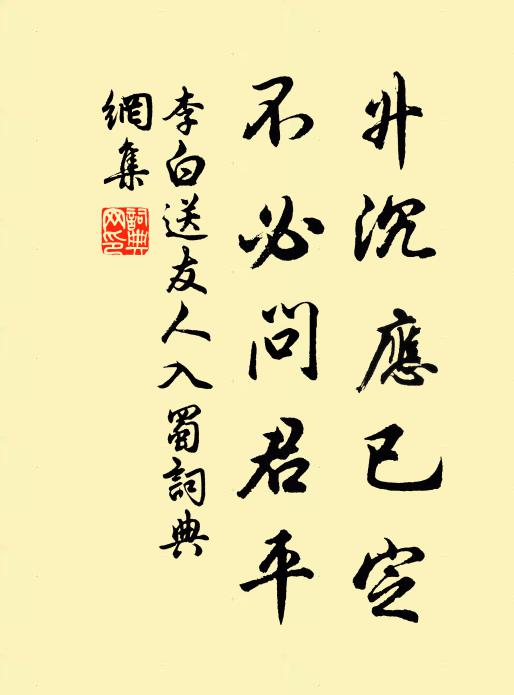 升沉應已定
不必問君平
李白送友人入蜀詞典
網集
詞典網印